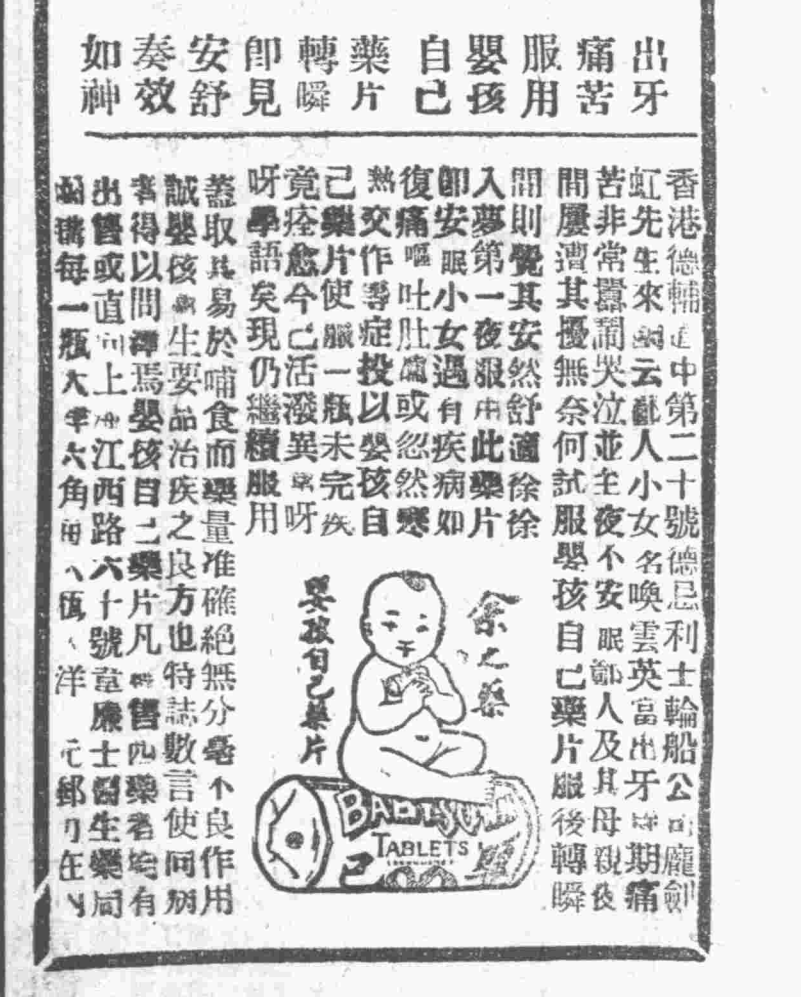 出牙
痛苦
服用
嬰孩
自己
藥片
轉瞬
卽見
安舒
奏效
如神
香港德輔道中第二十號德忌利士輪船公司龐劍
虹先生來函云鄙人小女名喚雲英當出牙時期痛
苦非常囂鬧哭泣並主夜不安眠鄙人及其母親夜
間屢遭其擾無奈何試服嬰孩自己藥片服後轉瞬
間則覺其安然舒適徐徐
入夢第一夜服用此藥片
卽安眠小女遇有疾病如
復痛嘔吐肚瀉或忽然寒
熱交作等症投以嬰孩自
己藥片使服一瓶未完疾
竟痊愈今已活潑異常呀
呀學語矣現仍繼續服用
蓋取其易於哺食而藥量准確絕無分毫不良作用
誠嬰孩衛生要品治疾之良方也特誌數言使同病
者得以問津焉嬰孩自己藥片凡經售西藥者均有
出售或直向上海江西路六十號韋廉士醫生藥局
函購每一瓶大洋六角每六瓶大洋 元郵力在內
余之藥
嬰孩自己藥片
BABY'S OWN
TABLETS
己